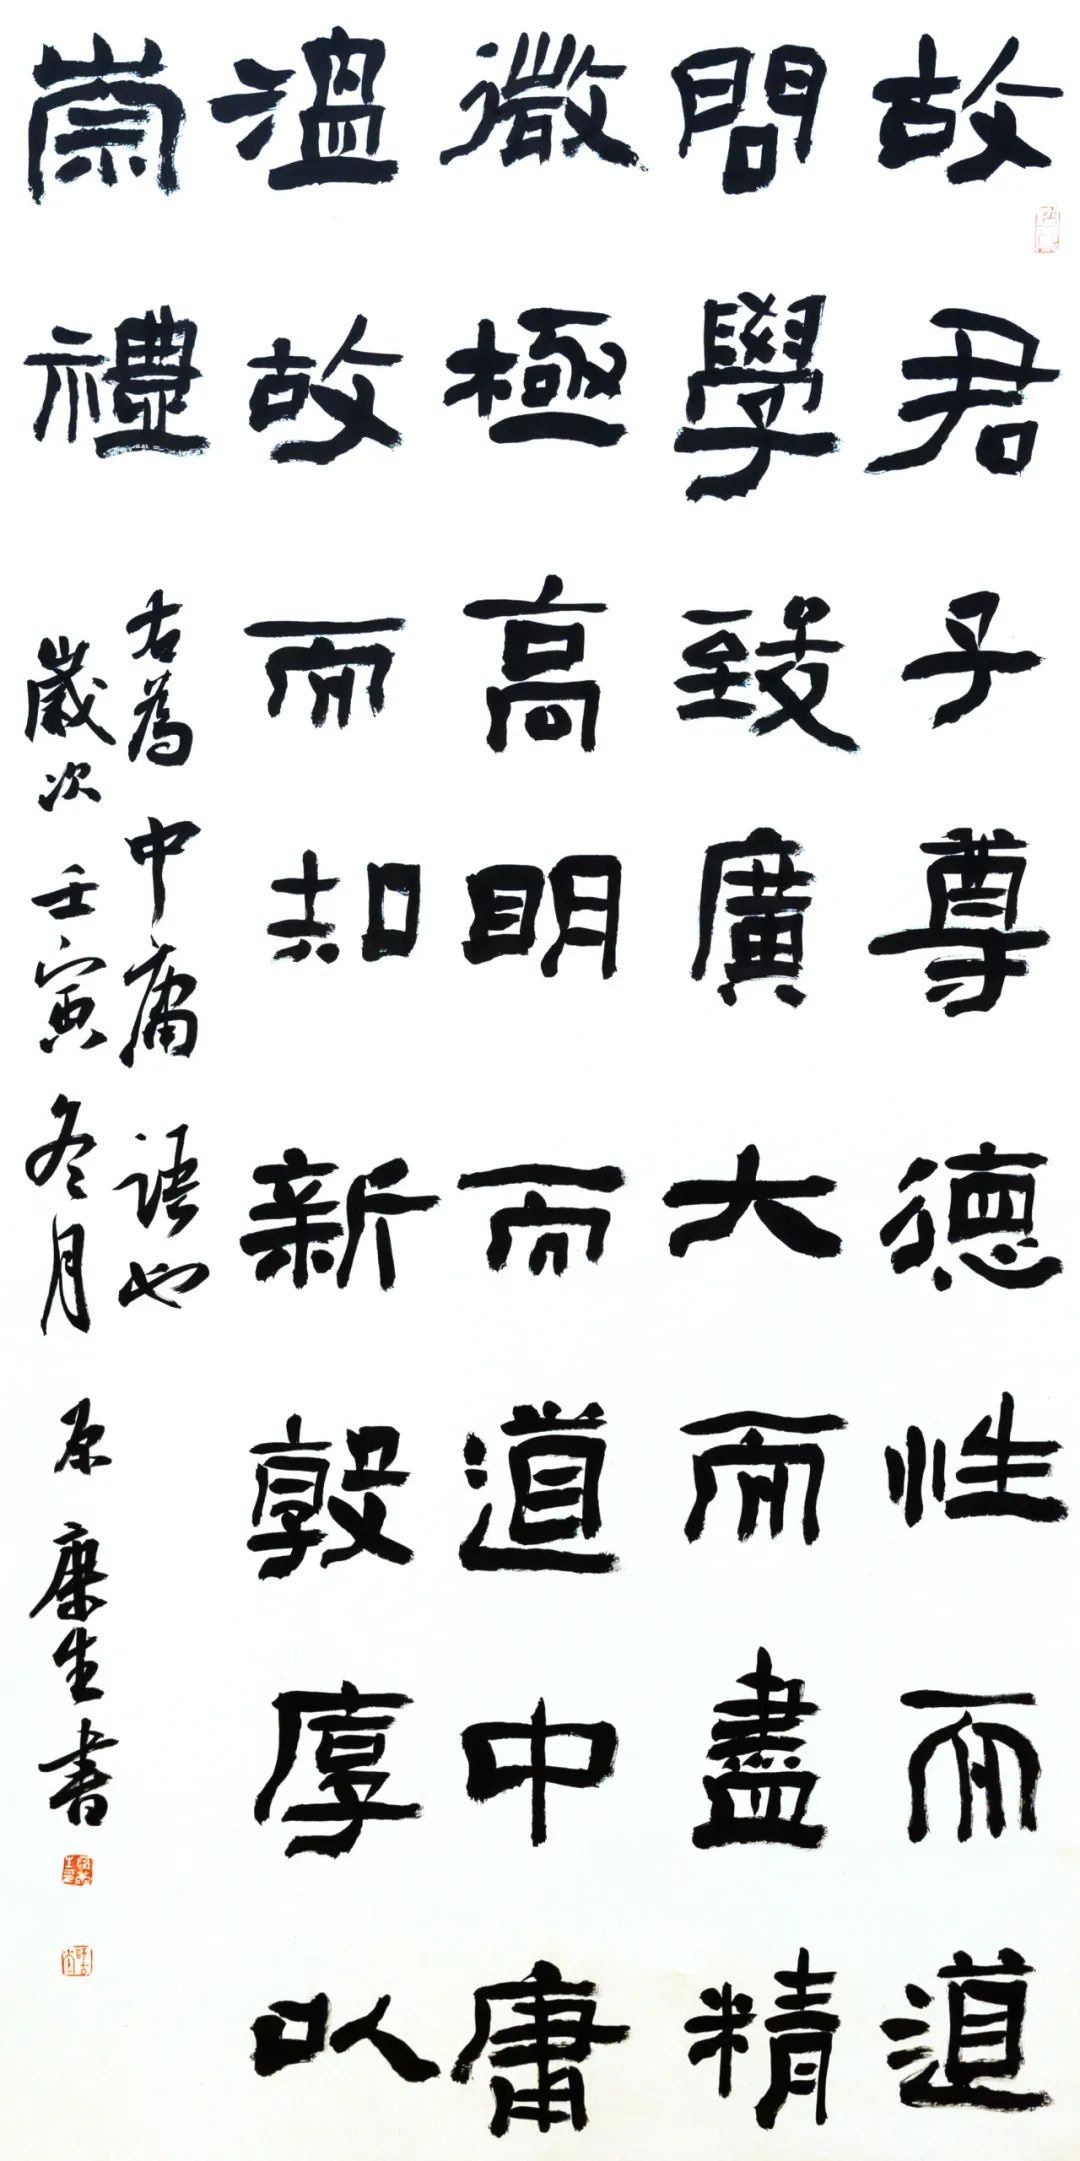 故君子尊德性而道
問學致廣大而盡精
微極高明而道中庸
溫故而知新敦厚以
崇禮
右為中庸語也
歲次壬寅冬月原康生書